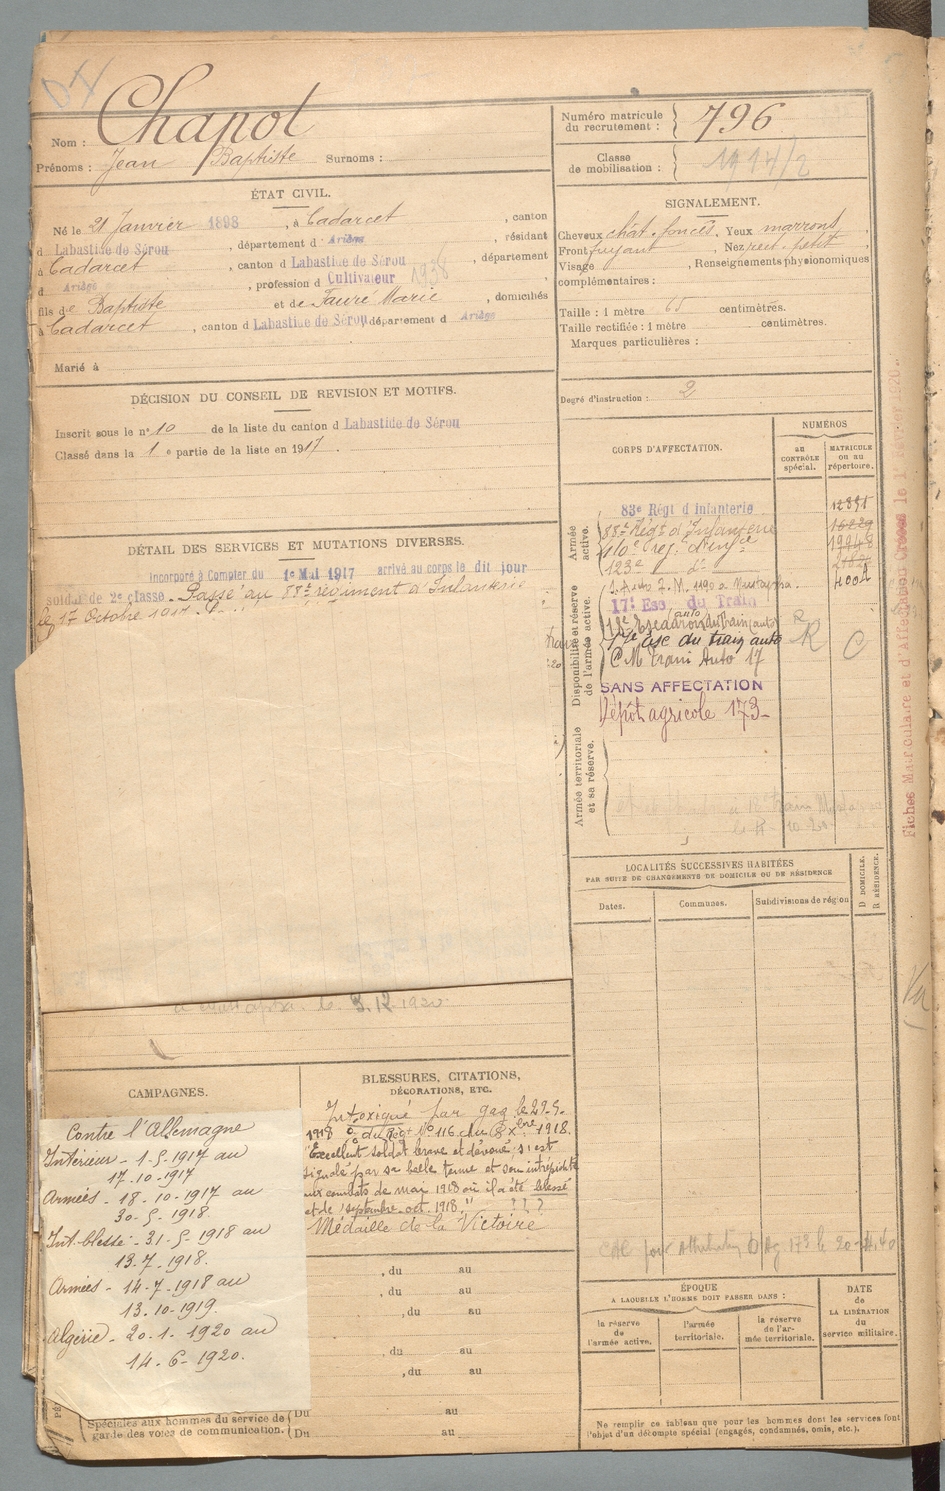 Chapot
Nom :
Prénoms : Jean Baptiste Surnoms :
ÉTAT CIVIL.
Né le 21 Janvier 1898, à Cadarcet, canton
d Labastide de Sérou, département d Ariège, résidant
à Cadarcet, canton d Labastide de Sérou, département
d Ariège, profession d Cultivateur 1938
fils de Baptiste et de Fauré Marie, domiciliés
à Cadarcet, canton d Labastide de Sérou, département d Ariège
Marié à
DÉCISION DU CONSEIL DE REVISION ET MOTIFS.
Inscrit sous le n° 10 de la liste du canton d Labastide de Sérou
Classé dans la 1e partie de la liste en 1917.
DÉTAIL DES SERVICES ET MUTATIONS DIVERSES.
Incorporé à Compter du 1er Mai 1917 arrivé au corps le dit jour
soldat de 2e classe. Passé au 88e régiment d'Infanterie
le 17 Octobre 1917
à Mustapha. le 3.12.1920.
CAMPAGNES.
Contre l'Allemagne
Intérieur - 1-5-1917 au
17-10-1917
Armées - 18-10-1917 au
30-5-1918.
Int. blessé - 31-5-1918 au
13.7.1918.
Armées - 14-7-1918 au
13.10.1919.
Algérie - 20.1.1920 au
14-6-1920.
Spéciales aux hommes du service de
garde des voies de communication.
BLESSURES, CITATIONS,
DÉCORATIONS, ETC.
Intoxiqué par gaz le 29.5.
1918 O du Régt N° 116 du 8 Xbre 1918.
"Excellent soldat brave et dévoué; s'est
signalé par sa belle tenue et son intrépidité
aux combats de mai 1918 où il a été blessé
et de septembre-oct. 1918." ? ? ?
Médaille de la Victoire
, du au
, du au
, du au
, du au
, du au
Du au
Du au
Numéro matricule
du recrutement : 796
Classe
de mobilisation : 1917/2
SIGNALEMENT.
Cheveux chât. foncés, Yeux marrons,
Front fuyant, Nez rect. petit,
Visage, Renseignements physionomiques
complémentaires :
Taille : 1 mètre 65 centimètres.
Taille rectifiée : 1 mètre centimètres.
Marques particulières :
Degré d'instruction : 2
CORPS D'AFFECTATION.
NUMÉROS
au
CONTRÔLE
spécial.
MATRICULE
ou au
répertoire.
Armée
active.
83e Régt d Infanterie 12891
88e Régt d'Infanterie
116e reg. d'infie 19948
123e d°
S. Auto T.M. 1190 à Mustapha.
Disponibilité et réserve
de l'armée active.
17e Esc. du Train
Escadron du Train (auto) R
17e esc du train auto K C
CM Train Auto 17
SANS AFFECTATION
Dépôt agricole 173
Armée territoriale
et sa réserve.
LOCALITÉS SUCCESSIVES HABITÉES
PAR SUITE DE CHANGEMENTS DE DOMICILE OU DE RÉSIDENCE
Dates.
Communes.
Subdivisions de région
D DOMICILE.
R RÉSIDENCE.
ÉPOQUE
A LAQUELLE L'HOMME DOIT PASSER DANS :
la réserve
de
l'armée active.
l'armée
territoriale.
la réserve
de l'ar-
mée territoriale.
DATE
de
LA LIBÉRATION
du
service militaire.
Ne remplir ce tableau que pour les hommes dont les services font
l'objet d'un décompte spécial (engagés, condamnés, omis, etc.).